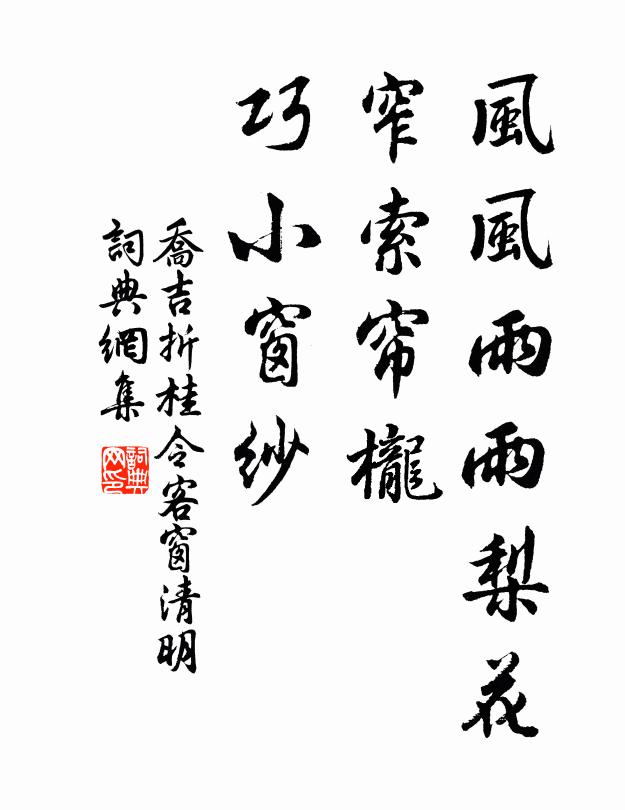 風風雨雨梨花
窄索帘櫳
巧小窗紗
喬吉折桂令客窗清明
詞典網集
詞典网印